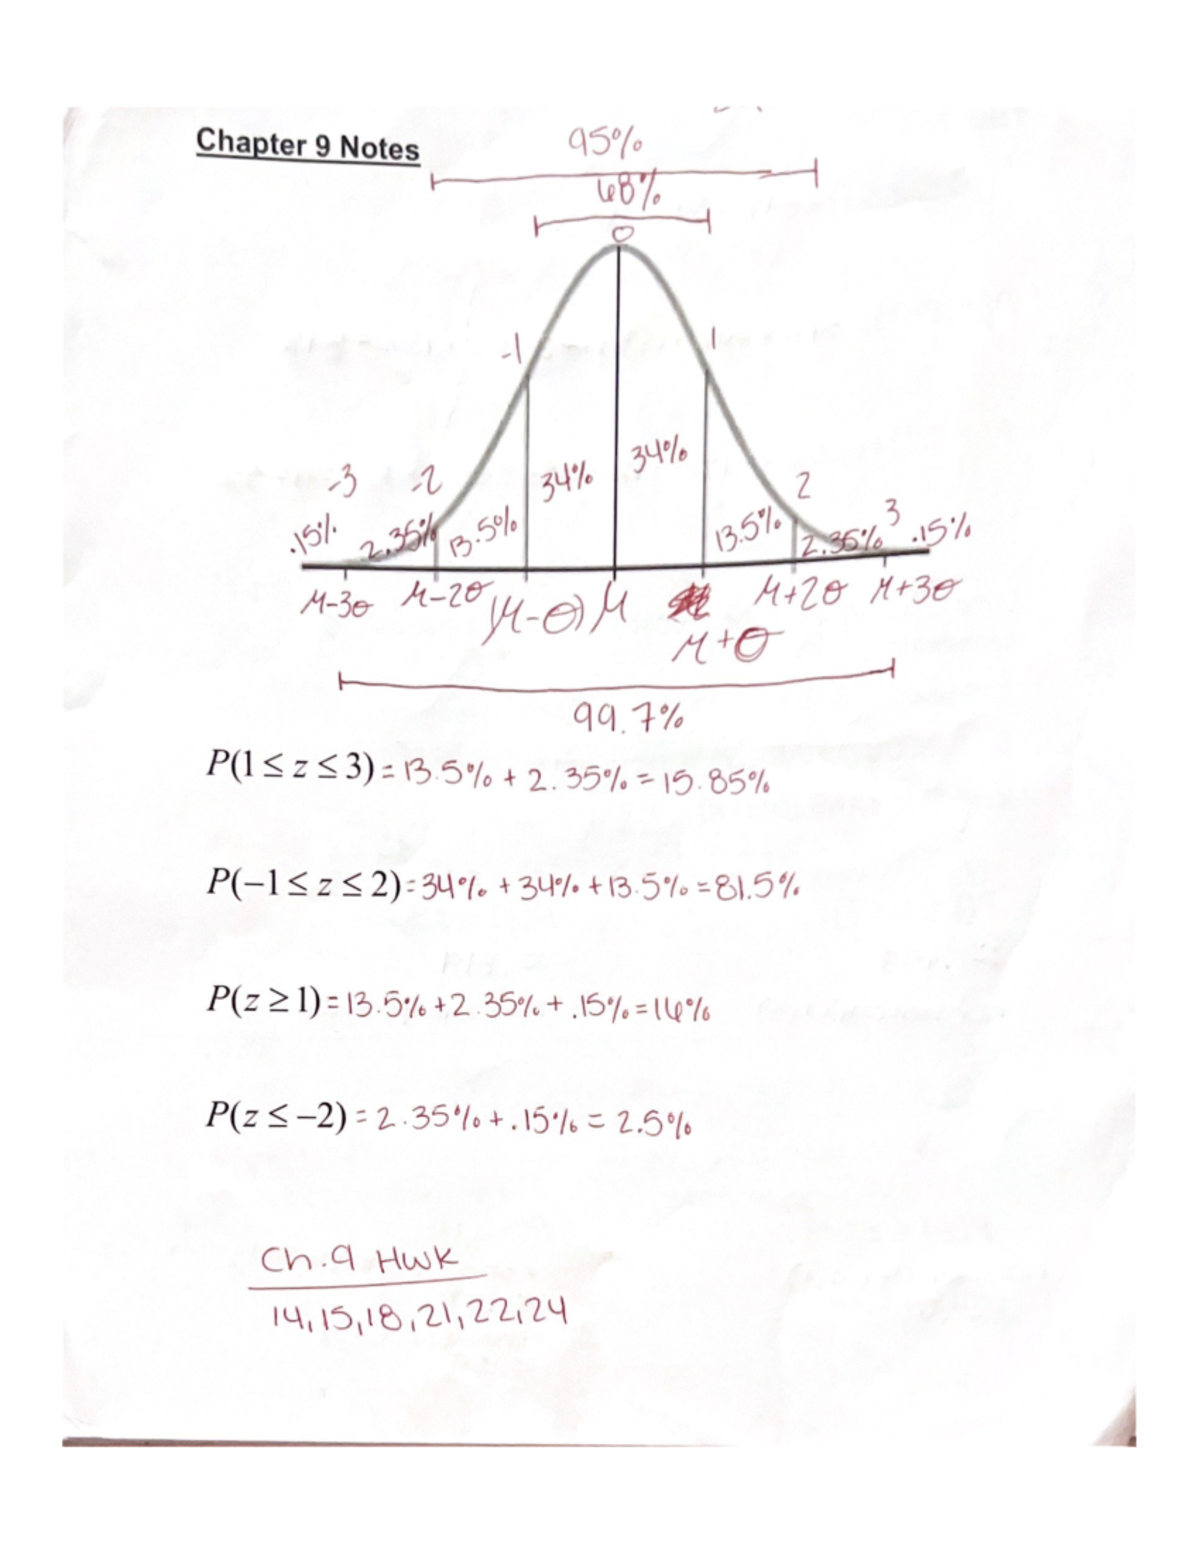 Chapter 9 Notes
95%
68%
0
-1
1
34%
34%
-3
-2
2
3
.15%
2.35%
13.5%
13.5%
2.35%
.15%
μ-3θ
μ-2θ
(μ-θ)
μ
μ+θ
μ+2θ
μ+3θ
99.7%
P(1 ≤ z ≤ 3) = 13.5% + 2.35% = 15.85%
P(−1 ≤ z ≤ 2) = 34% + 34% + 13.5% = 81.5%
P(z ≥ 1) = 13.5% + 2.35% + .15% = 16%
P(z ≤ −2) = 2.35% + .15% = 2.5%
Ch. 9 Hwk
14, 15, 18, 21, 22, 24